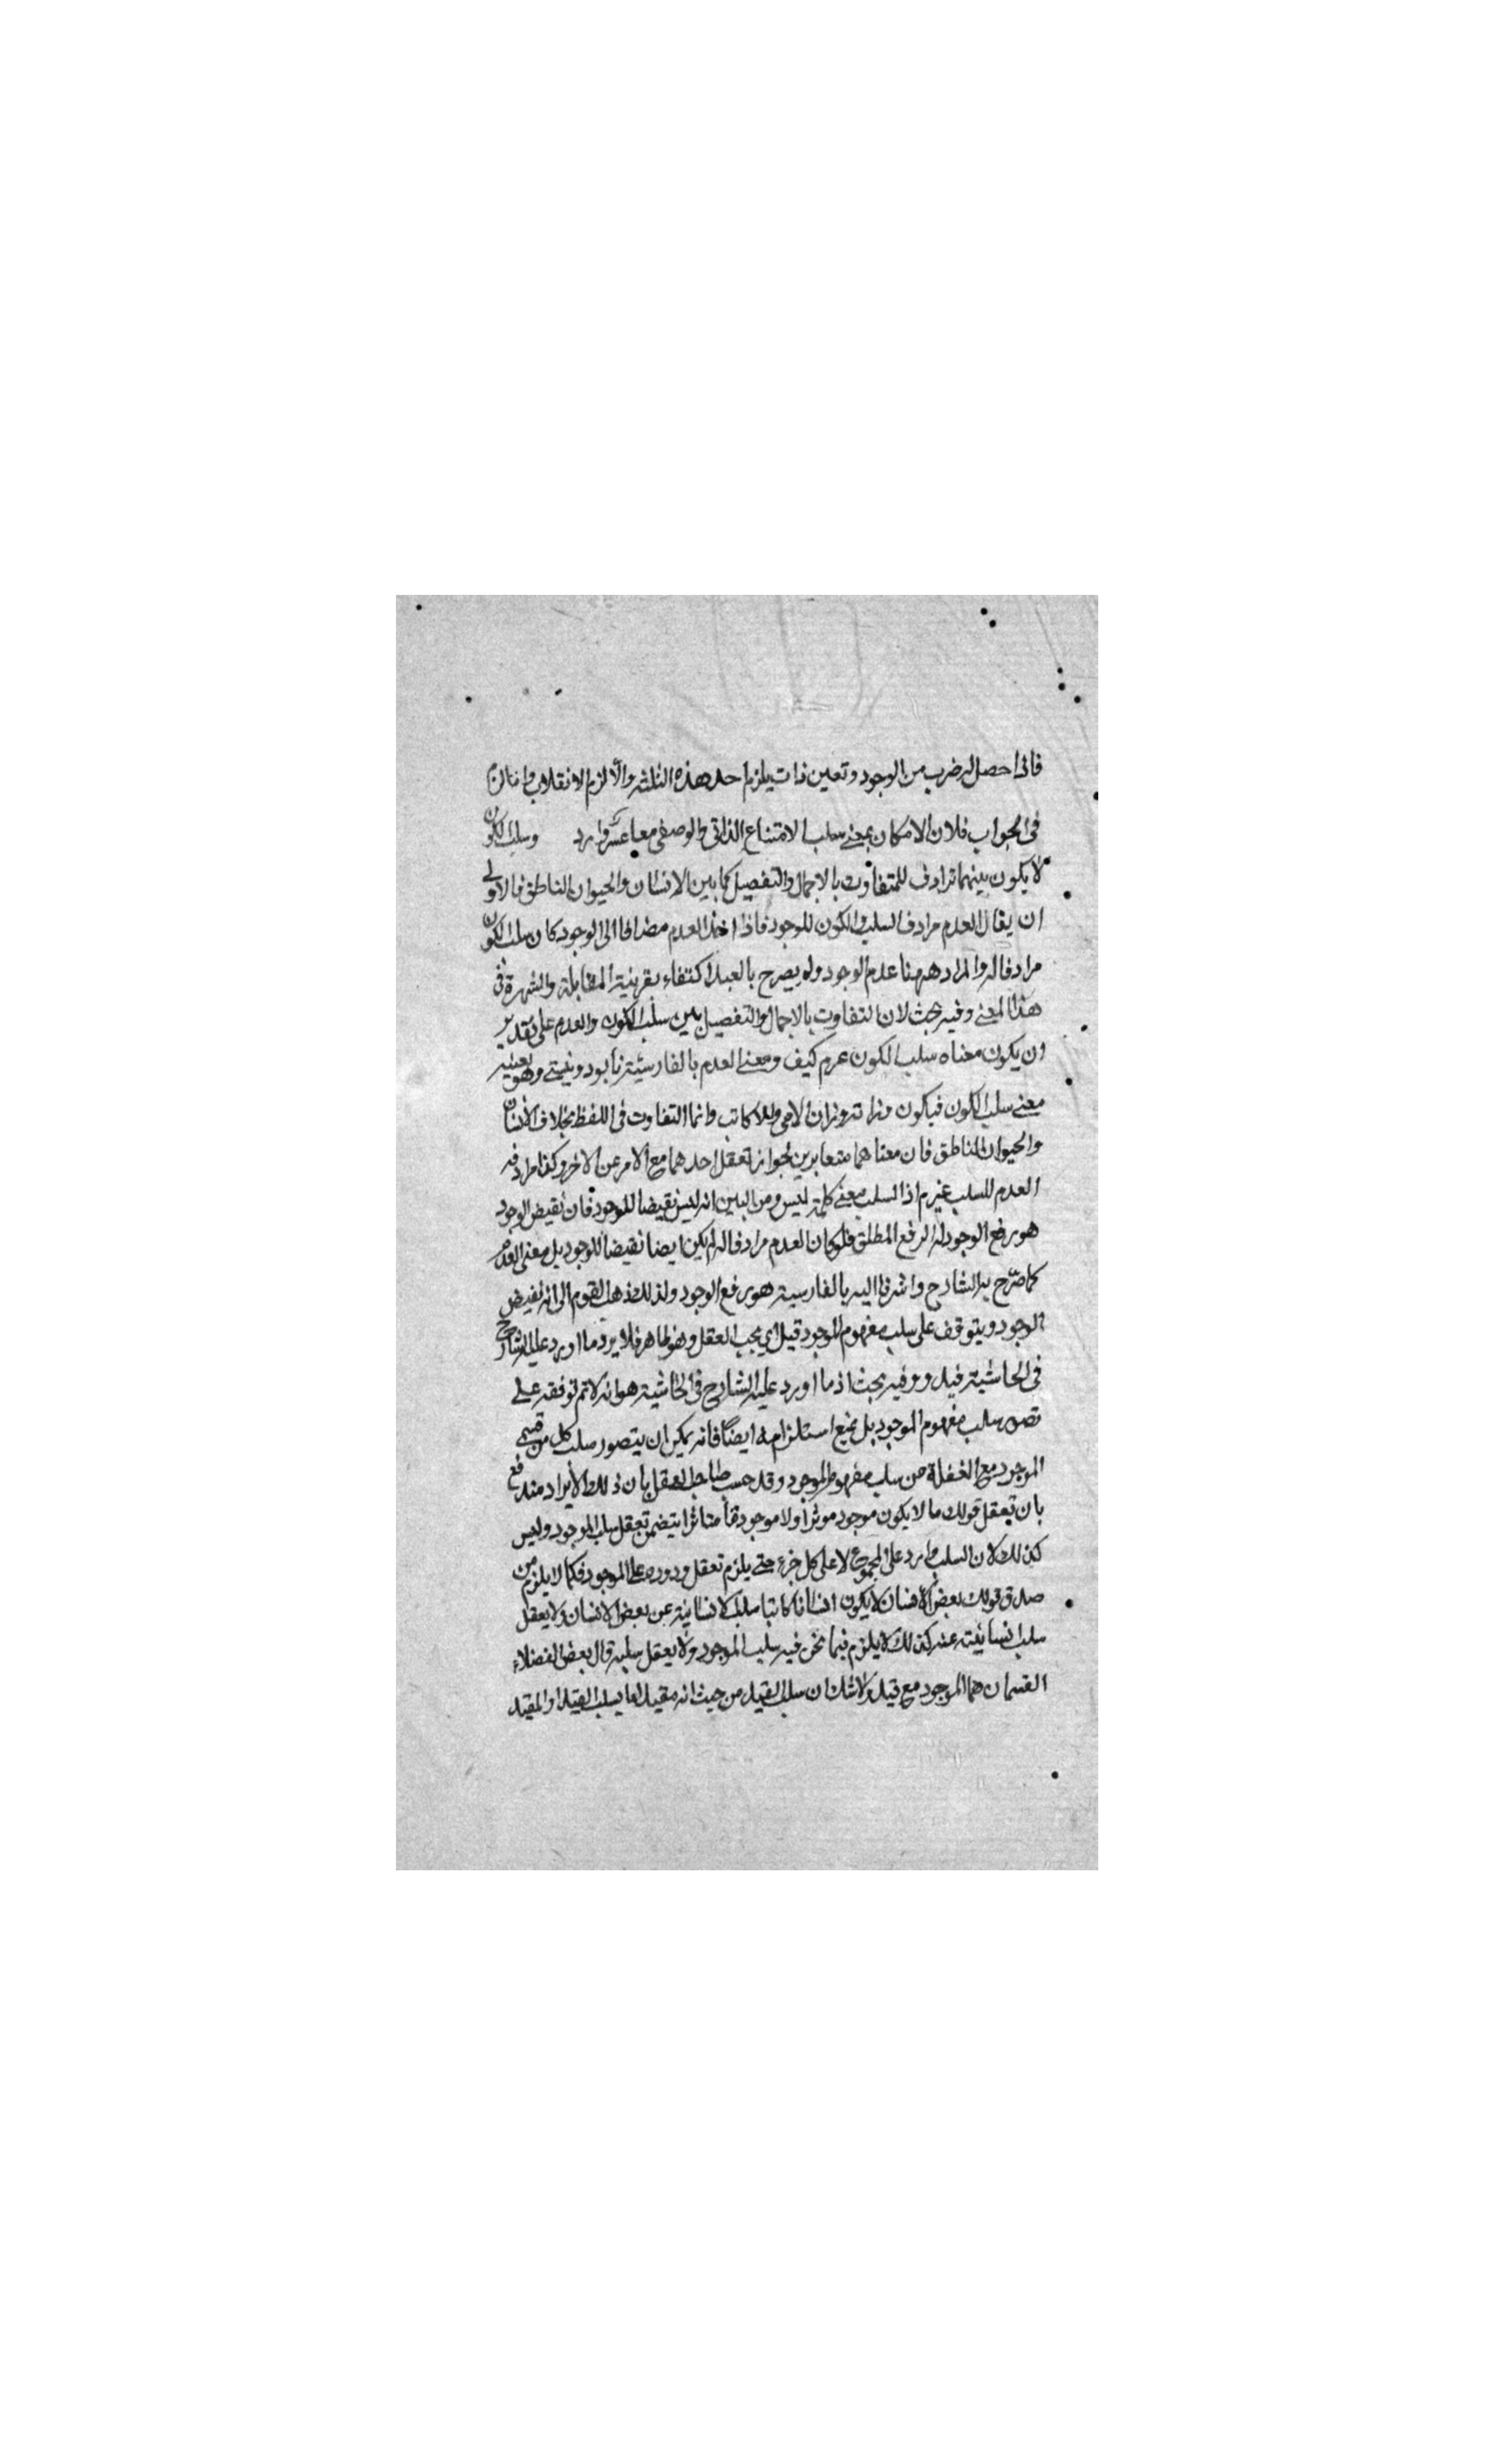 فاذا حصل له ضرب من الوجود وتعين ذات يلزم احد هذه الثلثة والا لزم الانقلاب واما ان
فى الجواب فلان الامكان بمعنى سلب الامتناع الذاتى والوصفى معا وارد وسلب الكون
لا يكون بينهما ترادف للمتفاوت بالاجمال والتفصيل كما بين الانسان والحيوان الناطق فالاولى
ان يقال العدم مرادف السلب والكون للوجود فاذا اخذ العدم مضافا الى الوجود كان سلب الكون
مرادفا له والمراد ههنا عدم الوجود ولم يصرح بالعبد اكتفاء بقرينة المقابلة والشهرة فى
هذا المعنى وفيه بحث لان التفاوت بالاجمال والتفصيل بين سلب الكون والعدم على تقدير
ان يكون معناه سلب الكون عرم كيف ومعنى العدم بالفارسية نابود ونيستى وهو بعينه
معنى سلب الكون فيكون وزانه وزان الامى واللاكاتب وانما التفاوت فى اللفظ بخلاف الانسان
والحيوان الناطق فان معناهما متغايرين لجواز تعقل احدهما مع الامر عن الاخر وكذا مرادفه
العدم للسلب غير م اذ السلب معنى كلمة ليس ومن البين انه ليس نقيضا للوجود فان نقيض الوجود
هو رفع الوجود لا الرفع المطلق فلو كان العدم مرادفا له لم يكن ايضا نقيضا للوجود بل معنى العدم
كما صرح به الشارح واشرنا اليه بالفارسية هو رفع الوجود ولذلك ذهب القوم الى انه نقيض
الوجود ويتوقف على سلب مفهوم الموجود قيل اى بحب العقل وهو ظاهر فلا يرد ما اورد عليه الشارح
فى الحاشية قيل وفيه بحث اذ ما اورد عليه الشارح فى الحاشية هو انه لا تم توقفه على
تصور سلب مفهوم الموجود بل نمنع استلزامه ايضا فانه يمكن ان يتصور سلب كل من قسمى
الموجود مع الغفلة عن سلب مفهوم الموجود وقد حسب صاحب العقل بان ذلك الايراد مندفع
بان تعقل قولك ما لا يكون موجود موثرا ولا موجودا متاثرا يتضمن تعقل سلب الموجود وليس
كذلك لان السلب وارد على المجموع لا على كل جزء حتى يلزم تعقل وروده على الموجود فكما لا يلزم من
صدق قولك بعض الانسان لا يكون انسانا كاتبا سلب الانسانية عن بعض الانسان ولا يعقل
سلب انسانيته عنه كذلك لا يلزم فيما نحن فيه سلب الموجود ولا يعقل سلبه قال بعض الفضلاء
القسمان هما الموجود مع قيد ولا شك ان سلب المقيد من حيث انه مقيد اما بسلب القيد او المقيد